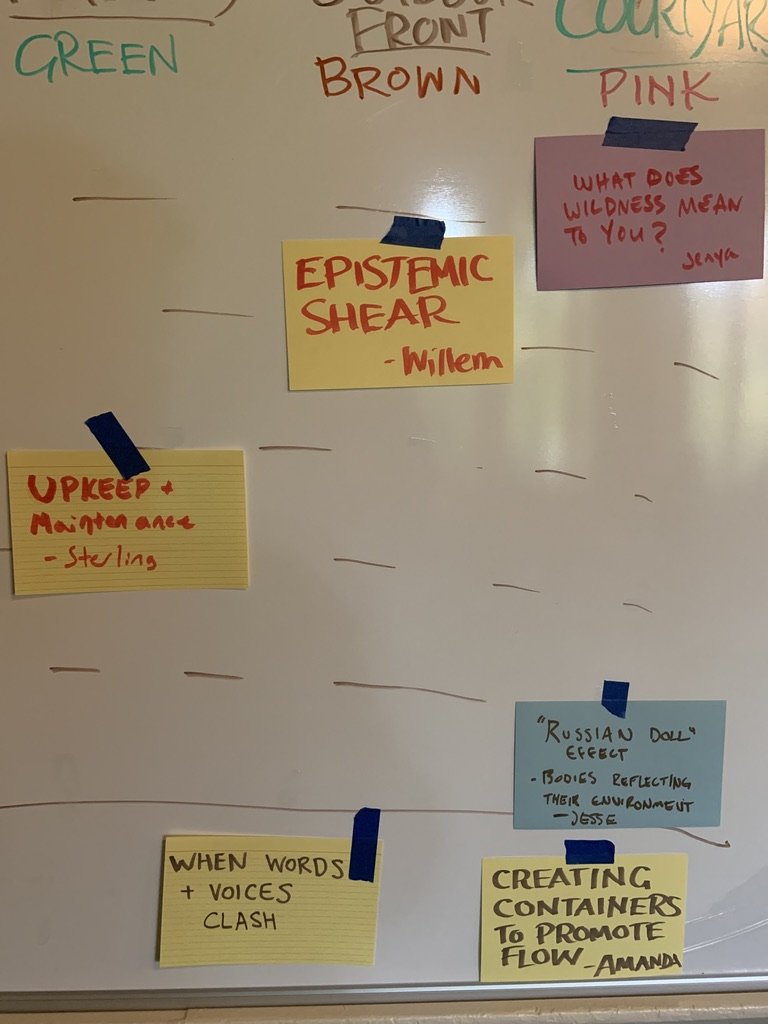 GREEN
FRONT
BROWN
COURTYARD
PINK
WHAT DOES
WILDNESS MEAN
TO YOU?
Jenya
EPISTEMIC
SHEAR
- Willem
UPKEEP +
Maintenance
- Sterling
"RUSSIAN DOLL"
EFFECT
- BODIES REFLECTING
THEIR ENVIRONMENT
- JESSE
WHEN WORDS
+ VOICES
CLASH
CREATING
CONTAINERS
TO PROMOTE
FLOW - AMANDA